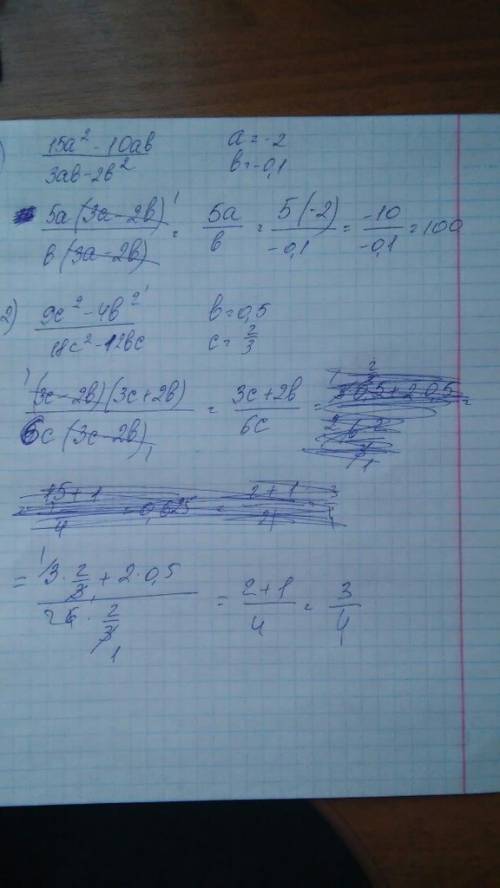 ) (15a² - 10ab)/(3ab - 2b²) a = -2
b = -0,1
5a(3a - 2b)/b(3a - 2b) = 5a/b = 5(-2)/-0,1 = -10/-0,1 = 100
2) (9c² - 4b²)/(18c² - 12bc) b = 0,5
c = 2/3
(3c - 2b)(3c + 2b)/6c(3c - 2b) = (3c + 2b)/6c =
= (3 · 2/3 + 2 · 0,5)/(6 · 2/3) = (2 + 1)/4 = 3/4